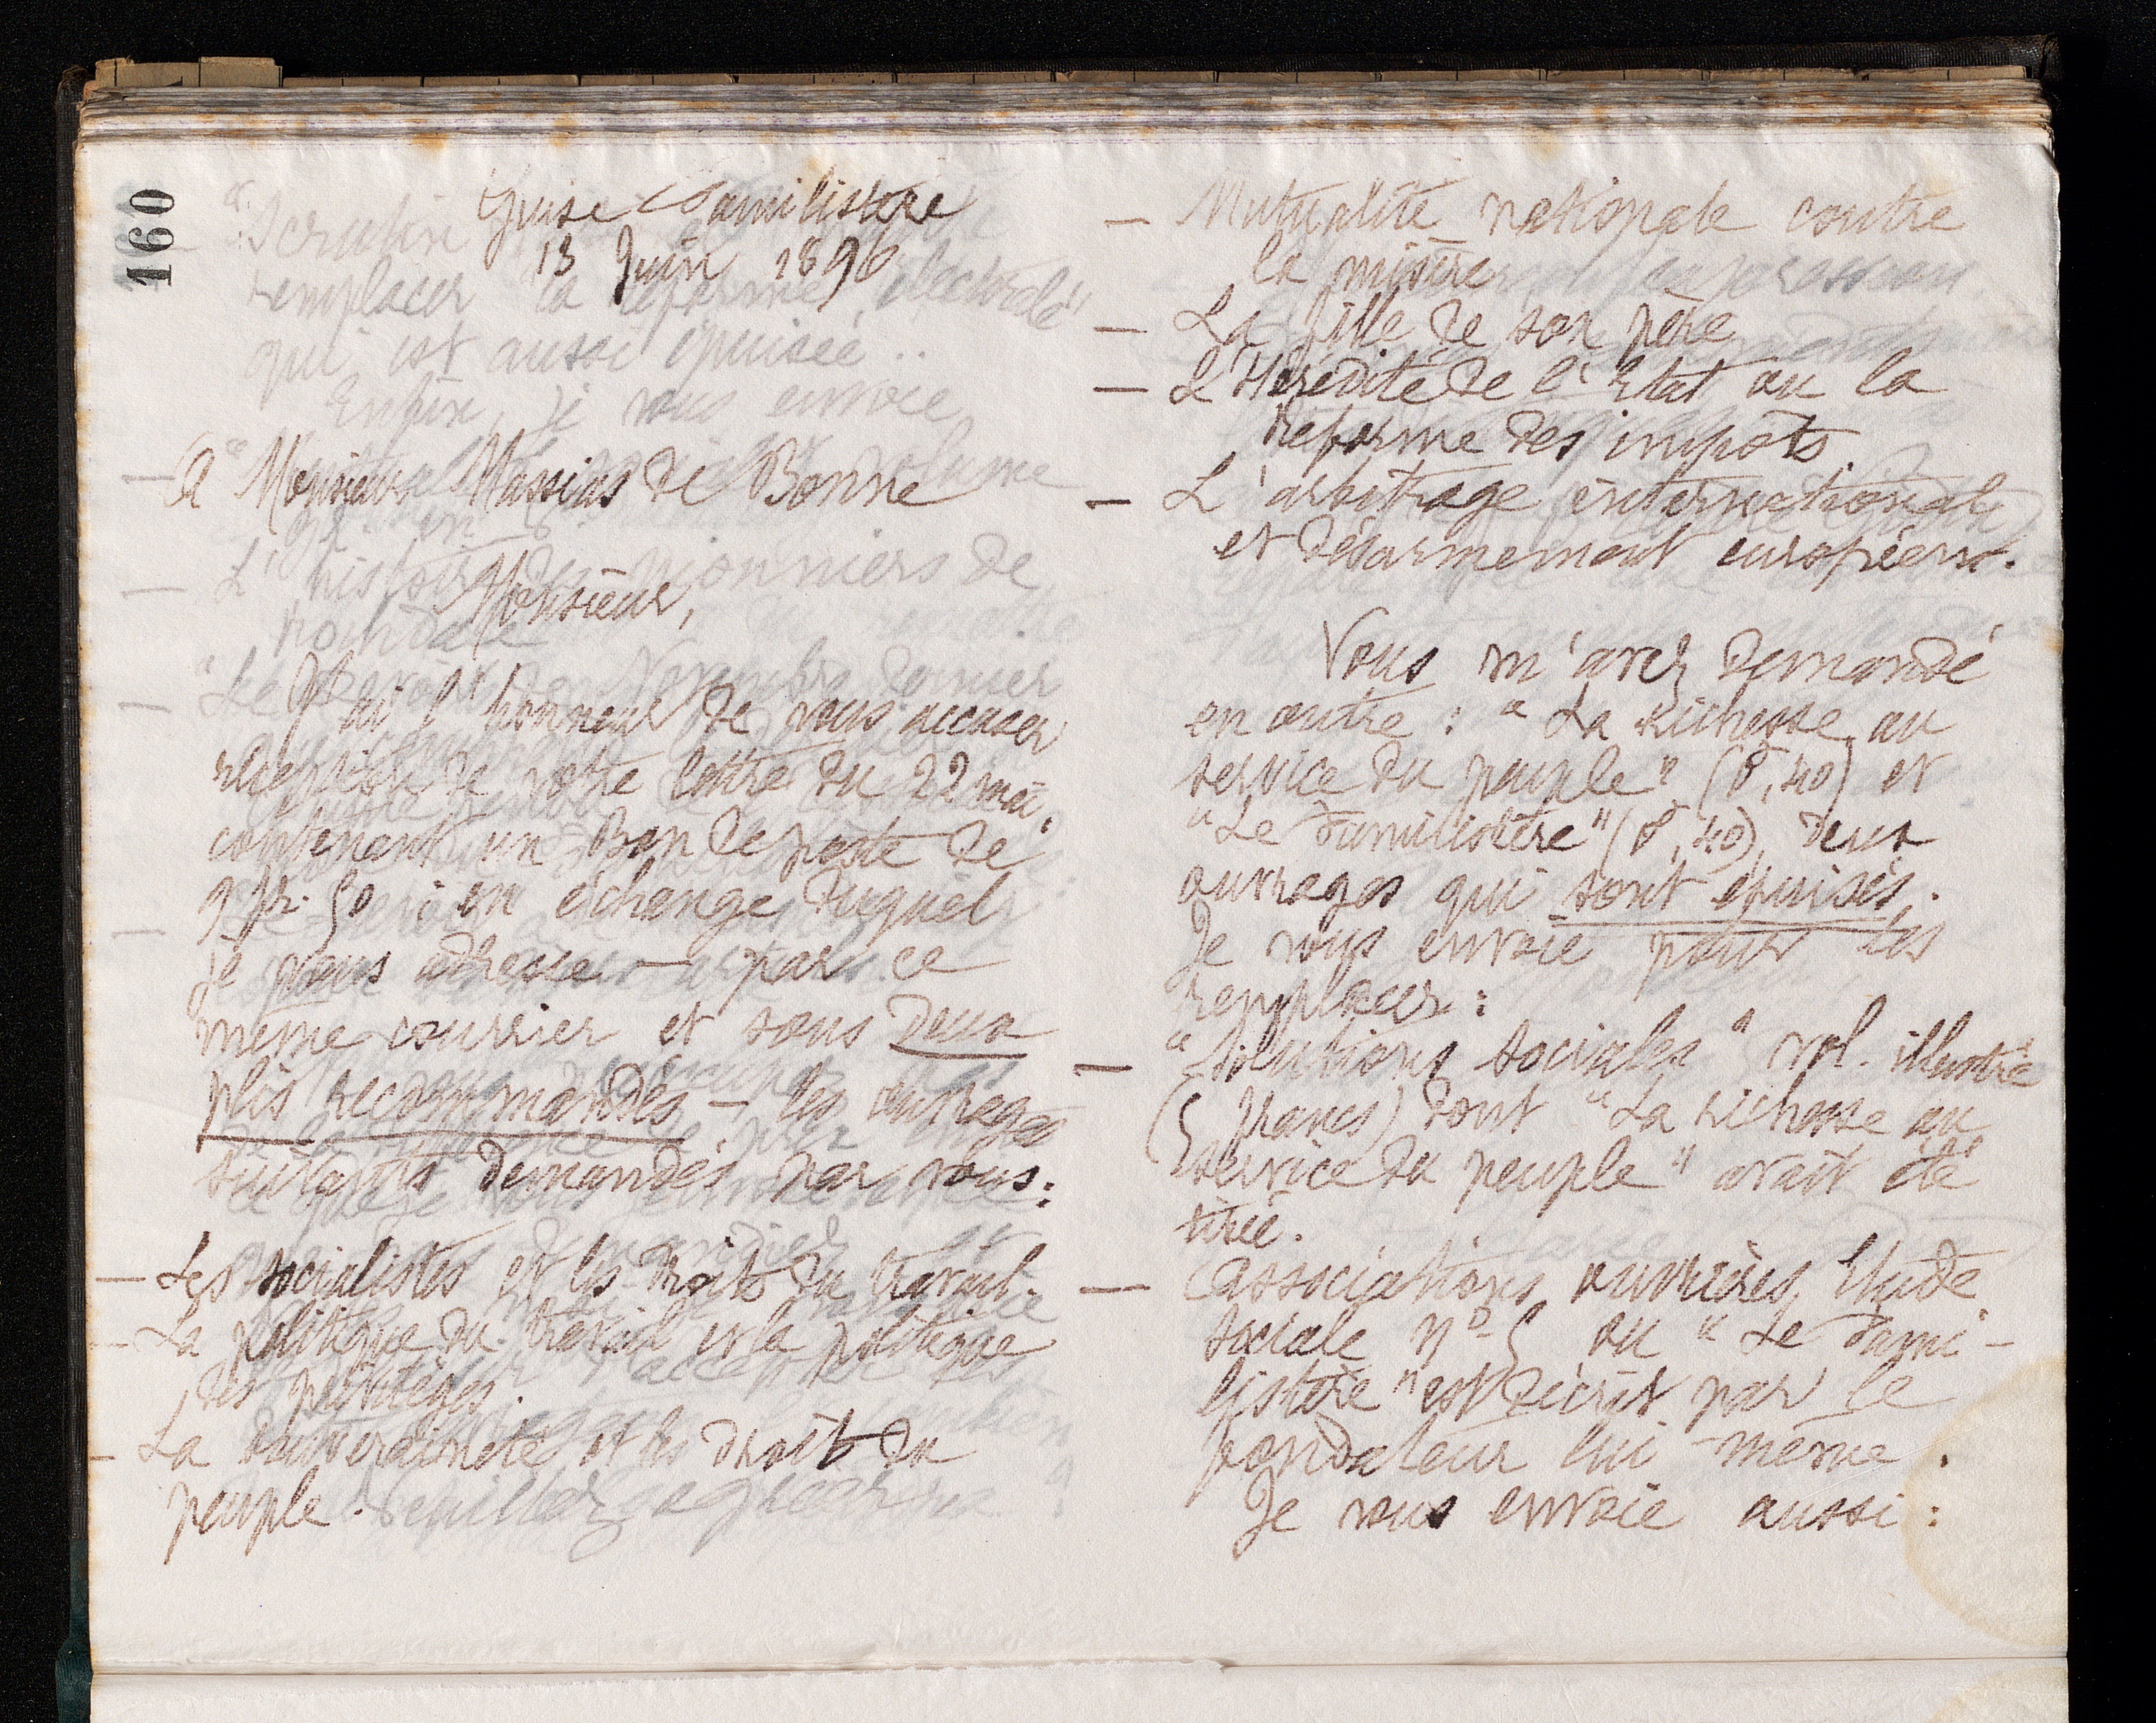 160
Guise Familistère
13 Juin 1896
A Monsieur Massias de Bonne
Monsieur,
J'ai l'honneur de vous accuser
réception de votre lettre du 22 mai,
contenant un Bon de poste de
9 fr. 50 : en échange duquel
je vous adresse — par ce
même courrier et sous deux
plis recommandés — les ouvrages
suivants demandés par vous :
— Les socialistes et les droits du travail.
— La politique du travail et la politique
des privilèges.
— La souveraineté et les droits du
peuple.
— Mutualité nationale contre
la misère
— La fille de son père
— L'Hérédité de l'Etat ou la
réforme des impôts.
— L'arbitrage international
et désarmement européen.
Vous m'avez demandé
en outre : "La richesse au
service du peuple" (0,40) et
"Le Familistère" (0,40), deux
ouvrages qui sont épuisés.
Je vous envoie pour les
remplacer :
— "Solutions sociales" vol. illustré
(5 francs) dont "La richesse au
service du peuple" avait été
tirée.
— Associations ouvrières, Etude
sociale n° 5 ou "Le Fami-
listère" est décrit par le
fondateur lui-même.
Je vous envoie aussi :